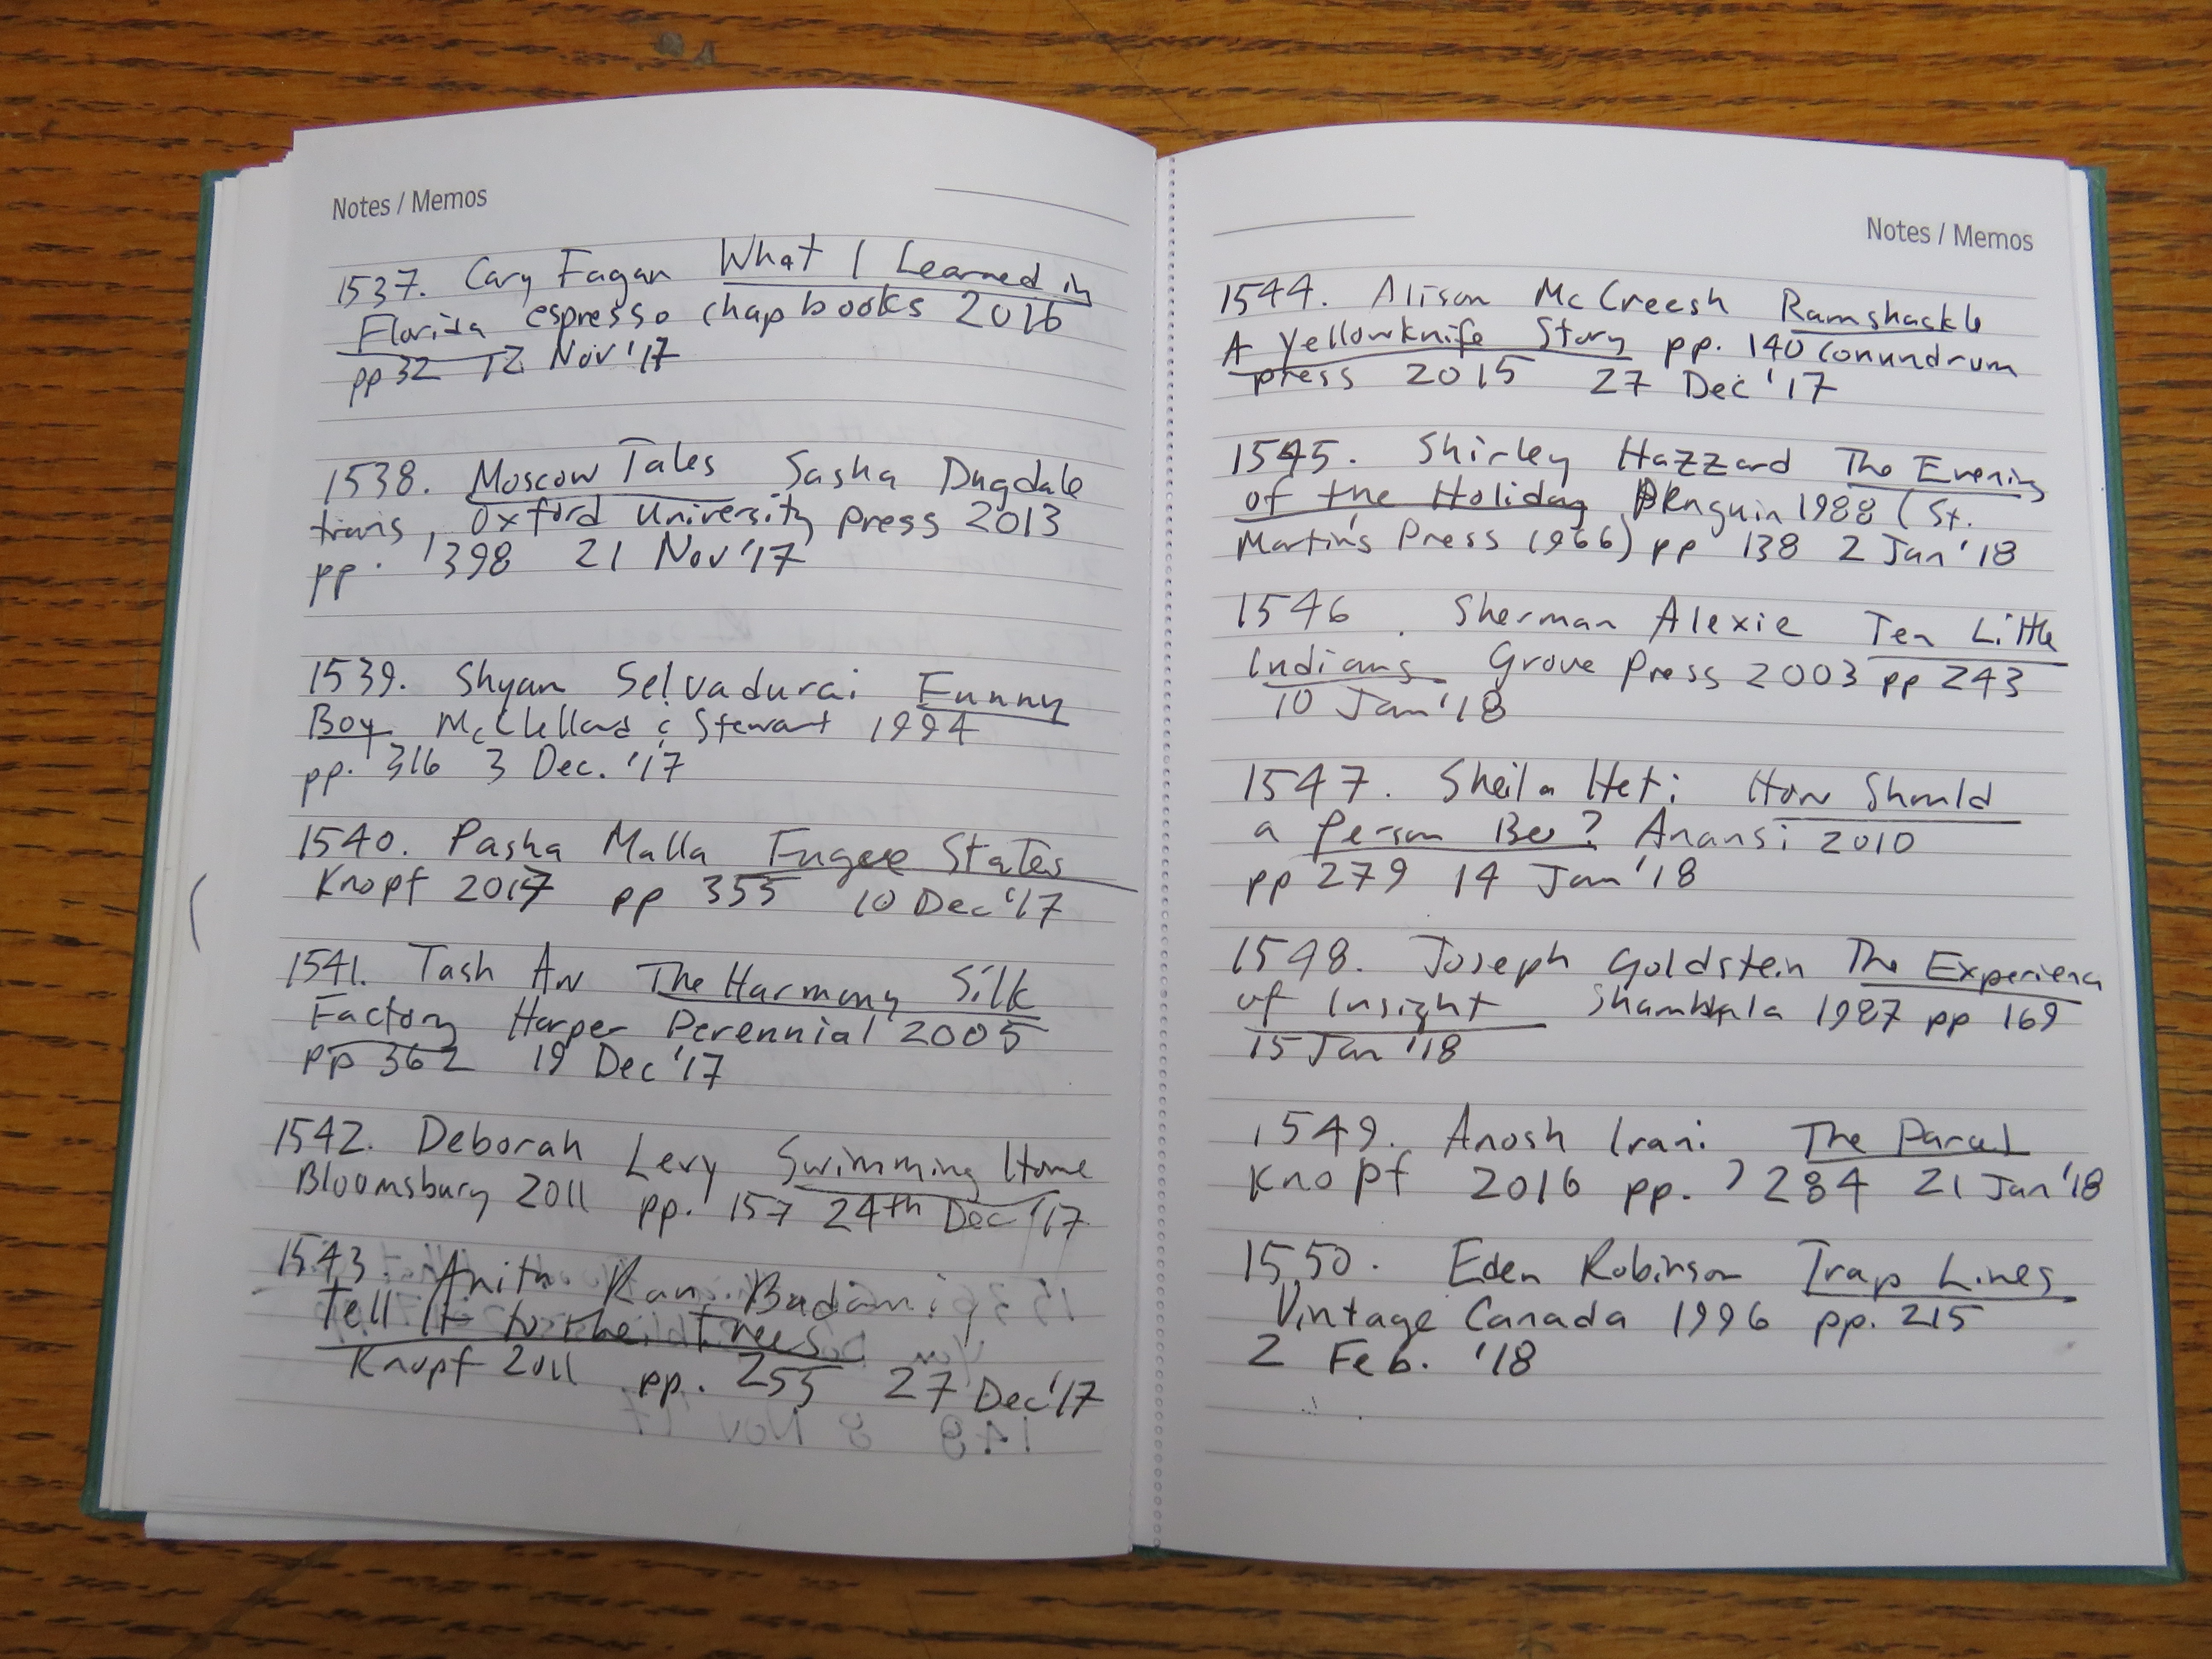 Notes / Memos
1537. Cary Fagan What I Learned in
Florida espresso chapbooks 2016
pp 32 12 Nov '17
1538. Moscow Tales Sasha Dugdale
trans, Oxford University press 2013
pp. 398 21 Nov '17
1539. Shyam Selvadurai Funny
Boy McClelland & Stewart 1994
pp. 316 3 Dec. '17
1540. Pasha Malla Fugue States
Knopf 2017 pp 355 10 Dec '17
1541. Tash Aw The Harmony Silk
Factory Harper Perennial 2005
pp 362 19 Dec '17
1542. Deborah Levy Swimming Home
Bloomsbury 2011 pp. 157 24th Dec '17
1543. Anita Rau Badami
Tell It to the Trees
Knopf 2011 pp. 255 27 Dec '17
Notes / Memos
1544. Alison McCreesh Ramshackle
A Yellowknife Story pp. 140 conundrum
press 2015 27 Dec '17
1545. Shirley Hazzard The Evening
of the Holiday Penguin 1988 (St.
Martin's Press 1966) pp 138 2 Jan '18
1546. Sherman Alexie Ten Little
Indians Grove Press 2003 pp 243
10 Jan '18
1547. Sheila Heti How Should
a Person Be? Anansi 2010
pp 279 14 Jan '18
1548. Joseph Goldstein The Experience
of Insight Shambhala 1987 pp 169
15 Jan '18
1549. Anosh Irani The Parcel
Knopf 2016 pp. 284 21 Jan '18
1550. Eden Robinson Trap Lines
Vintage Canada 1996 pp. 215
2 Feb. '18